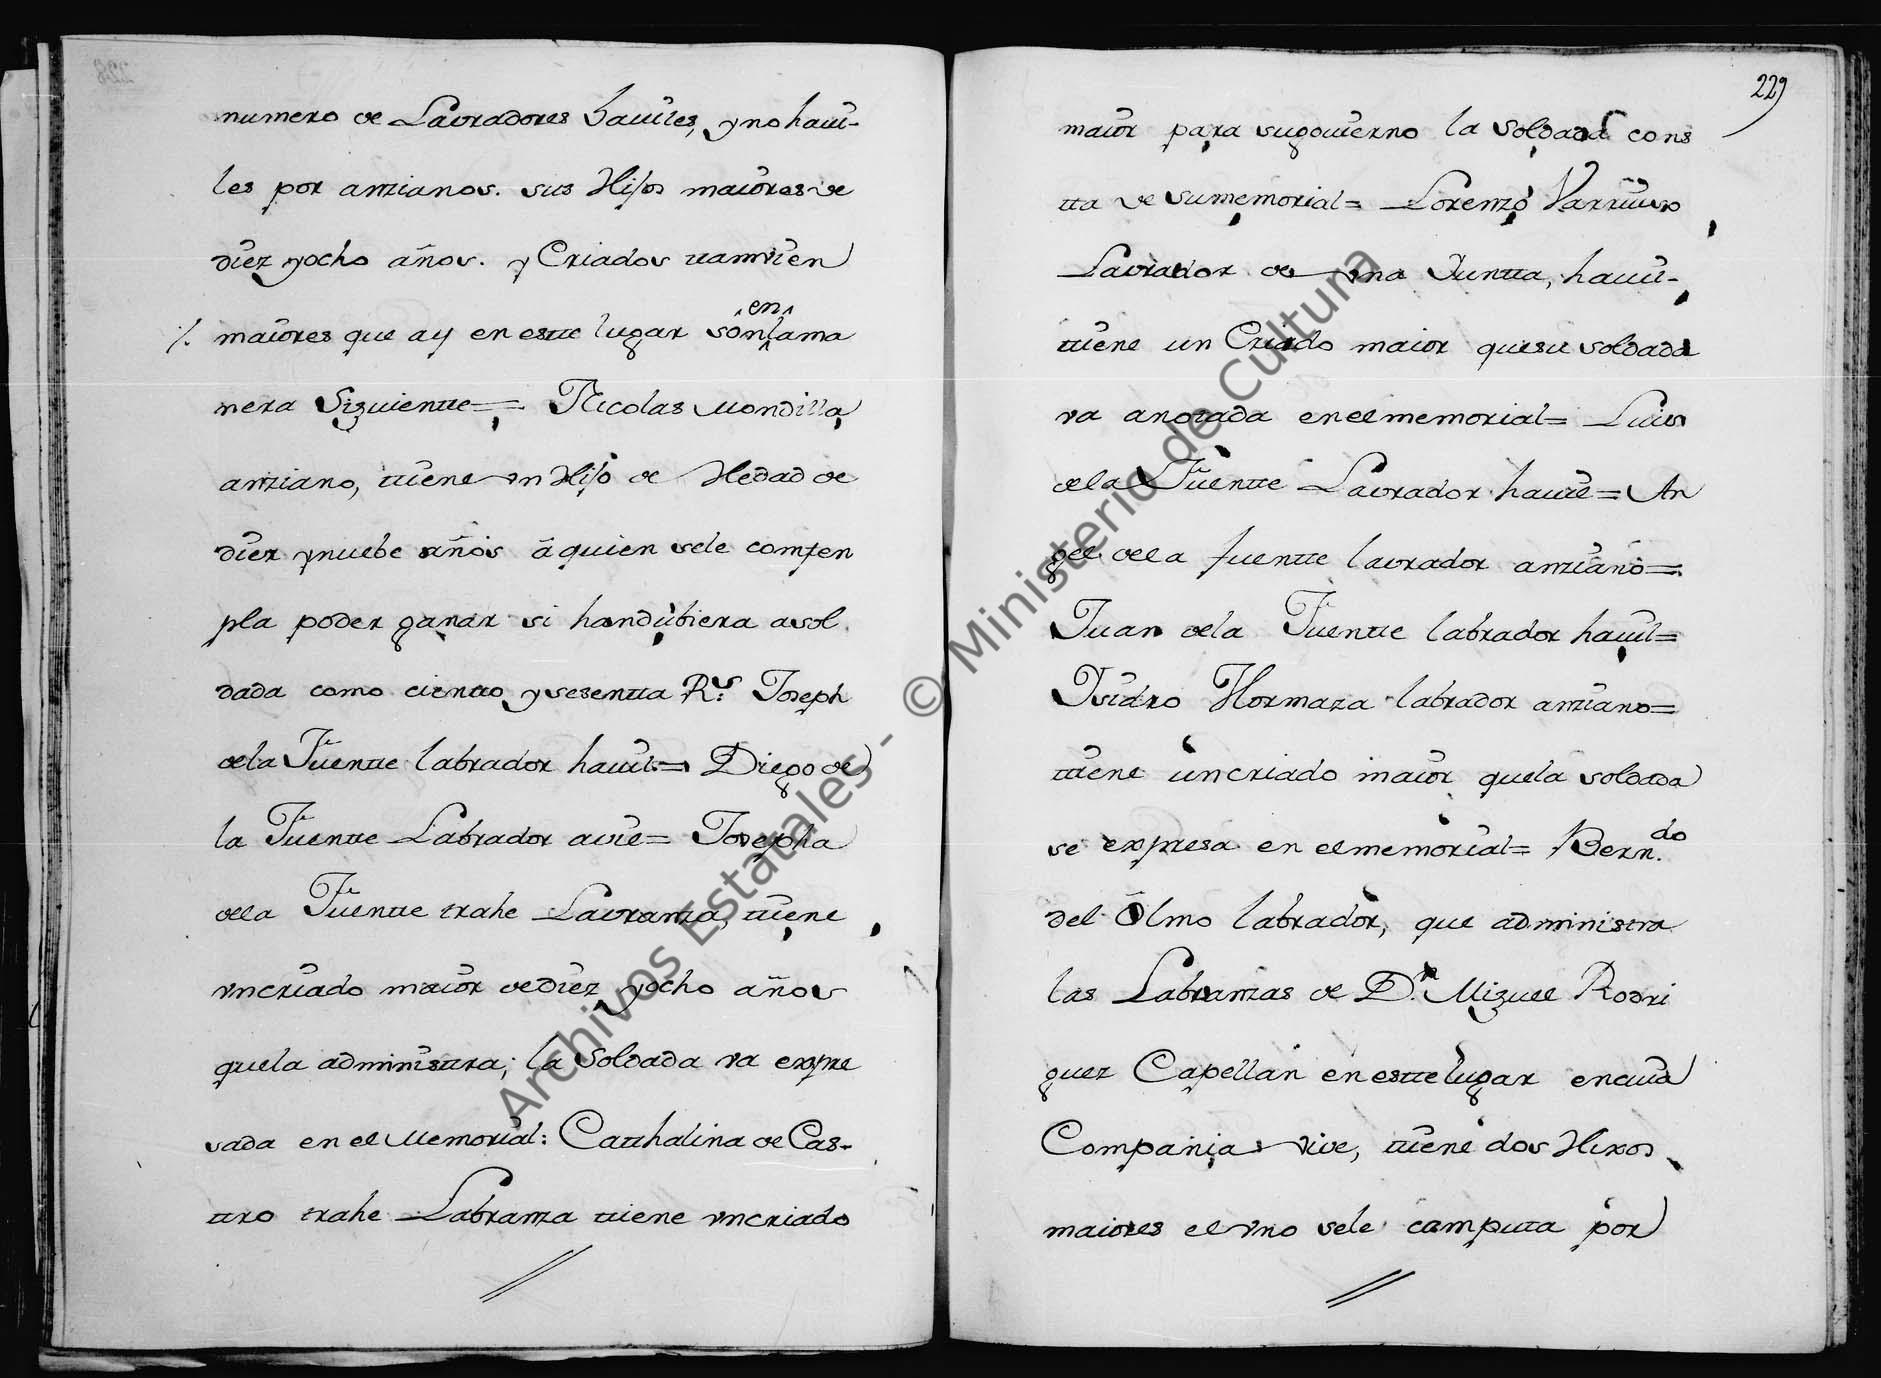 numero de Lavradores haviles, y no havi-
les por anzianos. sus Hijos maiores de
diez y ocho años. y Criados ttamvien
en
maiores que ay en estte lugar son la ma
nera Siguientte = Nicolas Mondilla
anziano, ttiene un Hijo de Hedad de
diez y nuebe años â quien se le compen
pla poder ganar si handubiera a sol
dada como cientto y sesentta R.s Joseph
de la Fuentte labrador havil = Diego de
la Fuentte Labrador avil = Josepha
de la Fuentte trahe Lavranza, ttiene
un criado maior de diez y ocho años
que la administtra; la Soldada va expre
sada en el Memorial: Catthalina de Cas-
ttro trahe Labranza ttiene un criado
229
maior para su govierno la soldada cons
tta de su memorial = Lorenzo Varruuso
Lavrador de una Juntta, havil
ttiene un Criado maior que su soldada
va anotada en el memorial = Luis
de la Fuentte Lavrador havil = An
gel de la fuentte lavrador anziano =
Juan de la Fuentte labrador havil =
Ysidro Hormaza labrador anziano =
ttiene un criado maior que la soldada
se expresa en el memorial = Bern.do
del Olmo labrador, que administra
las Labranzas de D.n Miguel Rodri
guez Capellan en estte lugar en cuia
Compania vive, ttiene dos Hixos
maiores el uno se le computta por
© Ministerio de Cultura - Archivos Estatales